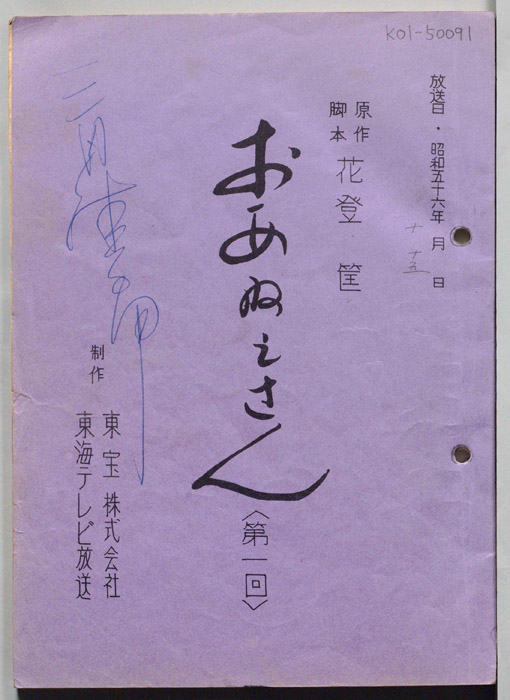 K01-50091
放送日・昭和五十六年 月 日
十 十五
原作
脚本
花登 筐
おあねえさん
〈第一回〉
制作
東宝株式会社
東海テレビ放送